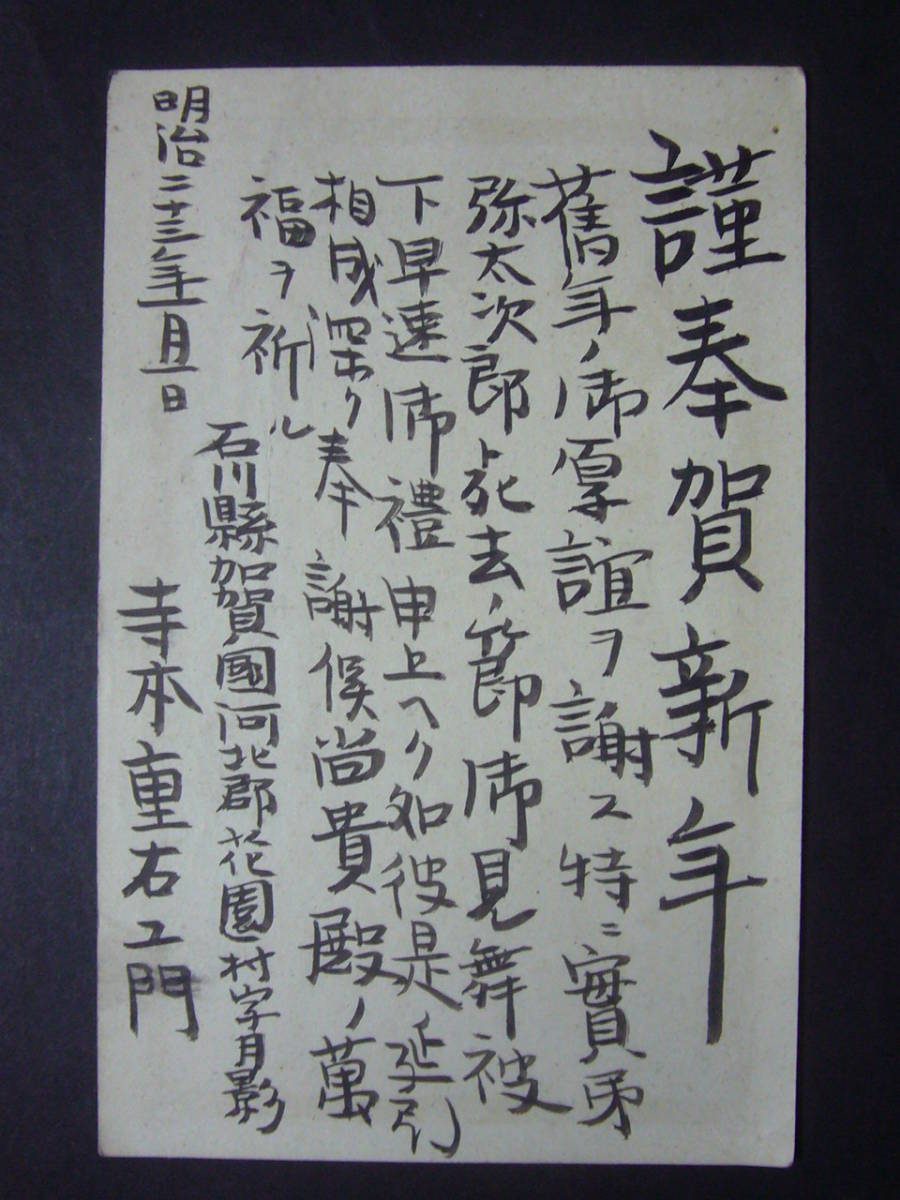 謹奉賀新年
舊年ノ御厚誼ヲ謝ス特ニ實弟
弥太次郎死去ノ節御見舞被
下早速御禮申上ヘク処彼是ノ延引
相成深ク奉謝候尚貴殿ノ萬
福ヲ祈ル
石川縣加賀國河北郡花園村字月影
明治二十三年一月一日
寺本重右エ門